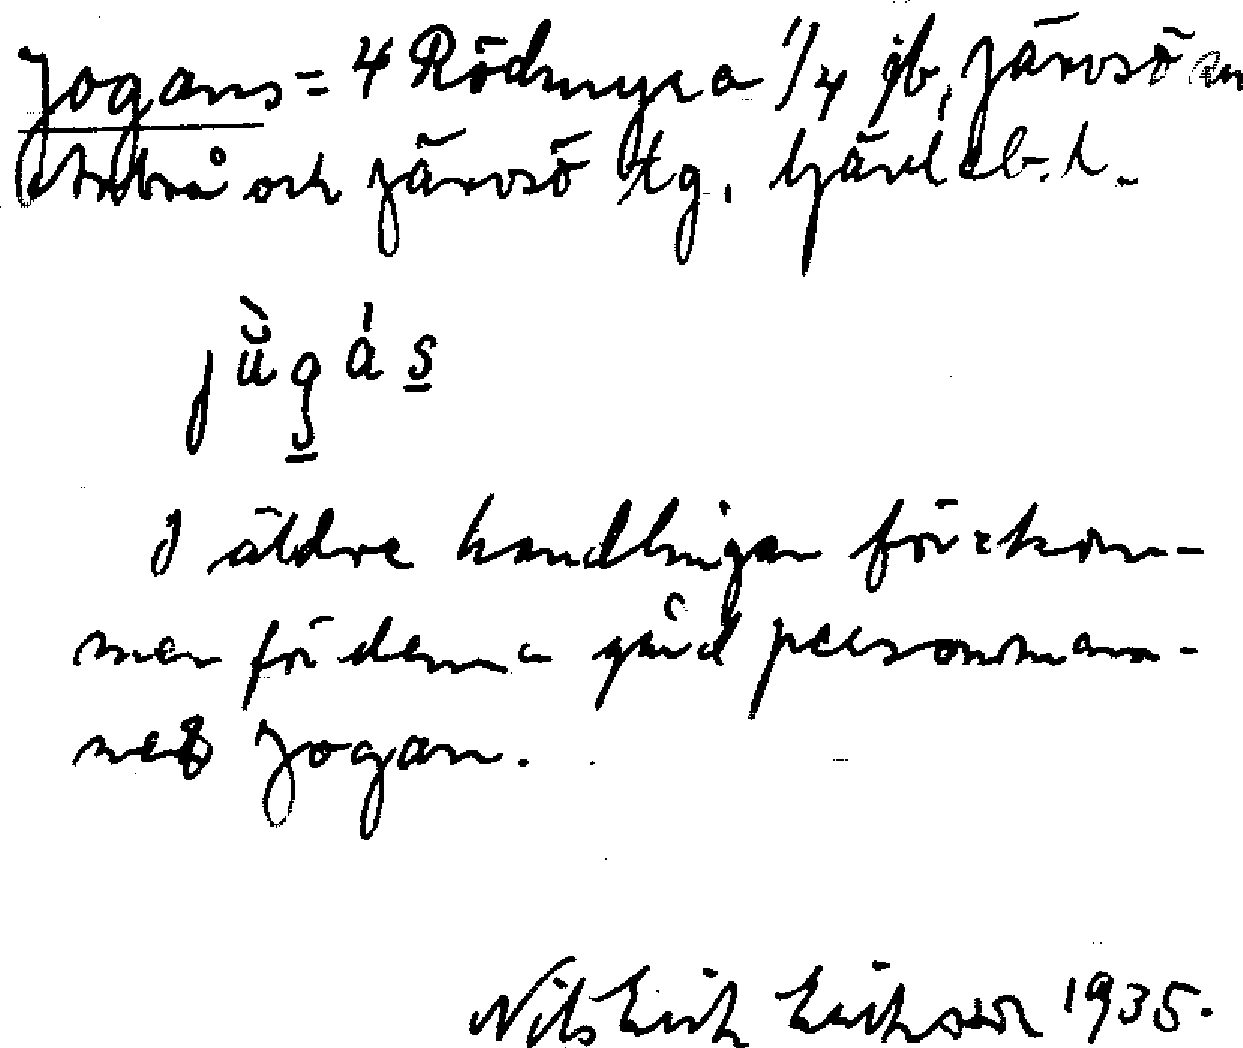 Jogans = 4 Rödmyra 1/4 jb, Järvsö sn
Arbrå och Järvsö tg. Gävleb. l.
jùgás
I äldre handlingar förekom-
mer för denna gård personnam-
net Jogan.
Nils Erik Eriksson 1935.